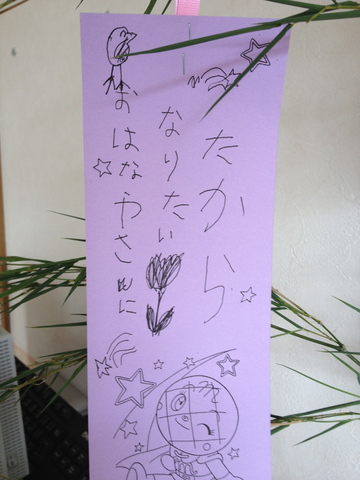 おはなやさんに
なりたい
たから